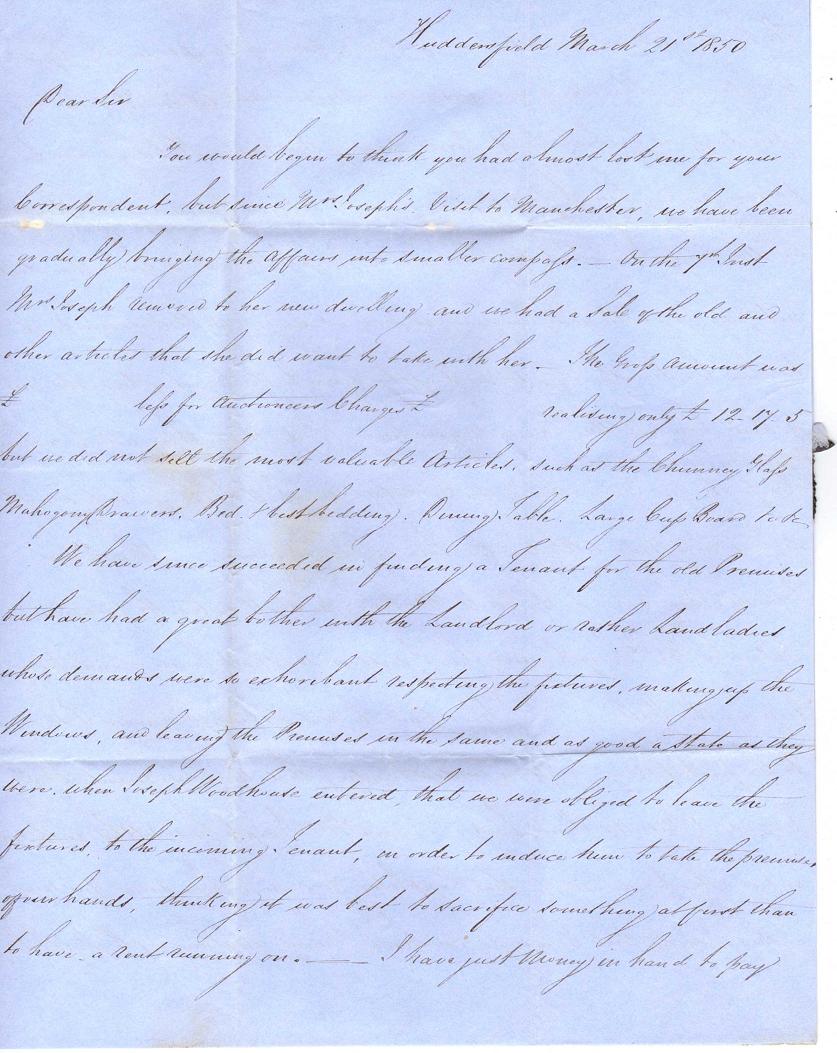 Huddersfield March 21st 1850
Dear Sir
You would begin to think you had almost lost me for your
Correspondent, but since Mrs. Joseph's Visit to Manchester, we have been
gradually bringing the Affairs into smaller compass. — On the 7th Inst
Mrs Joseph removed to her new dwelling and we had a Sale of the old and
other articles that she did want to take with her. — The Gross Amount was
£ less for Auctioneers Charges £ realising only £ 12. 17. 5
but we did not sell the most valuable Articles. such as the Chimney Glass
Mahogony Drawers. Bed. & best bedding. Dining Table. Large Cup Board &c &c
We have since succeeded in finding a Tenant for the old Premises
but have had a great bother with the Landlord or rather Landladies
whose demands were so exhorbitant respecting the fixtures, making up the
Windows, and leaving the Premises in the same and as good a state as they
were. when Joseph Woodhouse entered, that we were obliged to leave the
fixtures, to the incoming Tenant, in order to induce him to take the premises
of our hands, thinking it was best to sacrifice something at first than
to have a rent running on. —— I have just Money in hand to pay